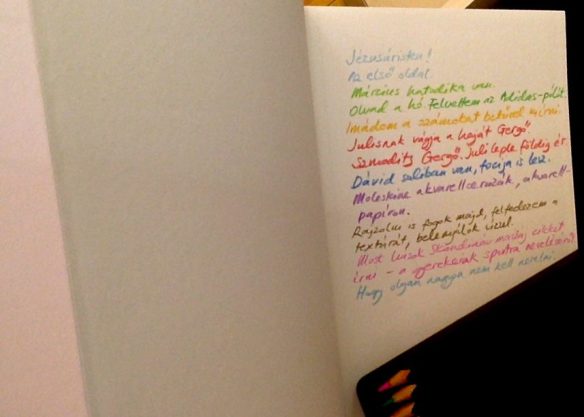 Jézusúristen!
Az első oldal.
Március hatodika van.
Olvad a hó. Felvettem az Adidas-pólót.
Imádom a számokat betűvel kiírni.
Julisnak vágja a haját Gergő.
Szmodits Gergő. Juli leple földig ér.
Dávid suliban van, focija is lesz.
Moleskine akvarellceruzák, akvarell-
papíron.
Rajzolni is fogok majd, felfedezem a
textúrát, belenyúlok vízzel.
Most írások Skandináv cikket
írni - a gyerekeink sportra neveléséről
Hogy olyan nagyon nem kell nevelni.